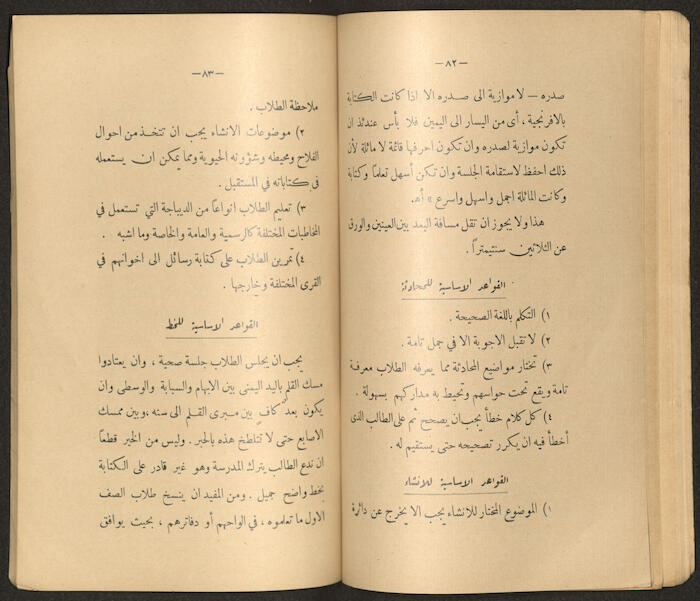 — ٨٢ —
صدره — لا موازية الى صدره الا اذا كانت الكتابة
بالافرنجية ، أى من اليسار الى اليمين فلا بأس عندئذ ان
تكون موازية لصدره وان تكون احرفها قائمة لا مائلة لأن
ذلك احفظ لاستقامة الجلسة وان تكن أسهل تعلماً وكتابة
وكانت المائلة اجمل واسهل واسرع » أه .
هذا ولا يجوز ان تقل مسافة البعد بين العينين والورق
عن الثلاثين سنتيمتراً .
القواعد الاساسية للمحادثة
١) التكلم باللغة الصحيحة .
٢) لا تقبل الاجوبة الا في جمل تامة .
٣) تختار مواضيع المحادثة مما يعرفه الطلاب معرفة
تامة ويقع تحت حواسهم وتحيط به مداركهم بسهولة .
٤) كل كلام خطأ يجب ان يصحح ثم على الطالب الذى
أخطأ فيه ان يكرر تصحيحه حتى يستقيم له .
القواعد الاساسية للانشاء
١) الموضوع المختار للانشاء يجب الا يخرج عن دائرة
— ٨٣ —
ملاحظة الطلاب .
٢) موضوعات الانشاء يجب ان تتخذ من احوال
الفلاح ومحيطه وشؤونه الحيوية ومما يمكن ان يستعمله
فى كتاباته في المستقبل .
٣) تعليم الطلاب انواعاً من الديباجة التي تستعمل في
المخاطبات المختلفة كالرسمية والعامة والخاصة وما اشبه .
٤) تمرين الطلاب على كتابة رسائل الى اخوانهم في
القرى المختلفة وخارجها .
القواعد الاساسية للخط
يجب ان يجلس الطلاب جلسة صحية ، وان يعتادوا
مسك القلم باليد اليمنى بين الابهام والسبابة والوسطى وان
يكون بعدٌ كافٍ بين مبرى القلم الى سنه ، وبين ممسك
الاصابع حتى لا تتلطخ هذه بالحبر . وليس من الخير قطعاً
ان ندع الطالب يترك المدرسة وهو غير قادر على الكتابة
بخط واضح جميل . ومن المفيد ان ينسخ طلاب الصف
الاول ما تعلموه ، في الواحهم أو دفاترهم ، بحيث يوافق